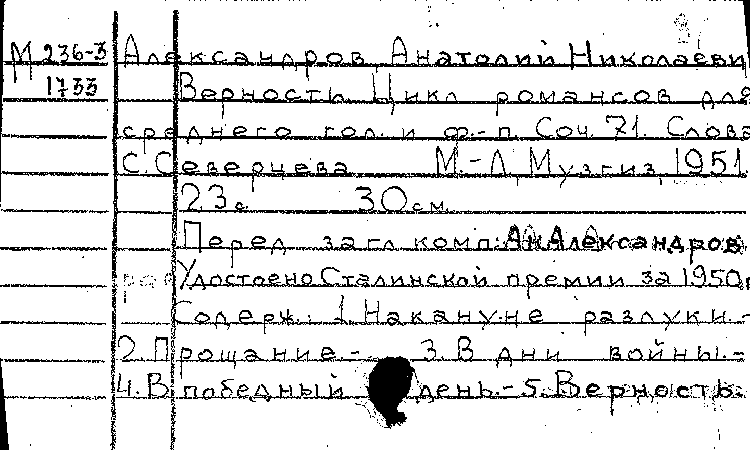 М 236-3 Александров, Анатолий Николаеви
1733 Верность. Цикл романсов для
среднего гол. и ф.-п. Соч. 71. Слова
С. Северцева М.-Л, Музгиз, 1951.
23 с 30 см
Перед загл комп: АнАлександров
Удостоено Сталинской премии за 1950г
Содерж.: 1. Накануне разлуки.-
2. Прощание.- 3. В дни войны.-
4. В победный день.- 5. Верность.